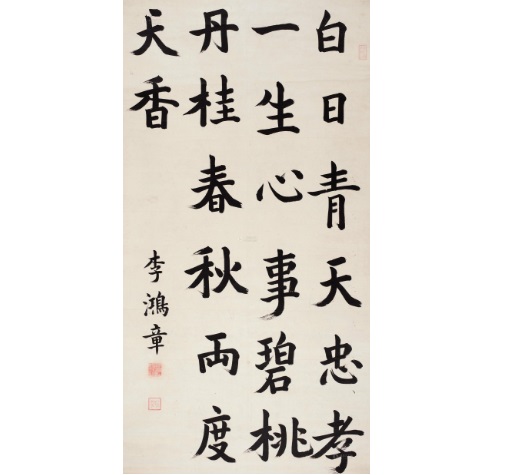 白日青天忠孝
一生心事碧桃
丹桂春秋两度
天香
李鴻章